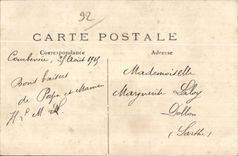 92
CARTE POSTALE
Correspondance
Adresse
Courbevoie, 31 Août 1915
Bons baisers
de Papa et Maman
Mademoiselle
Marguerite
Dollon
(Sarthe)